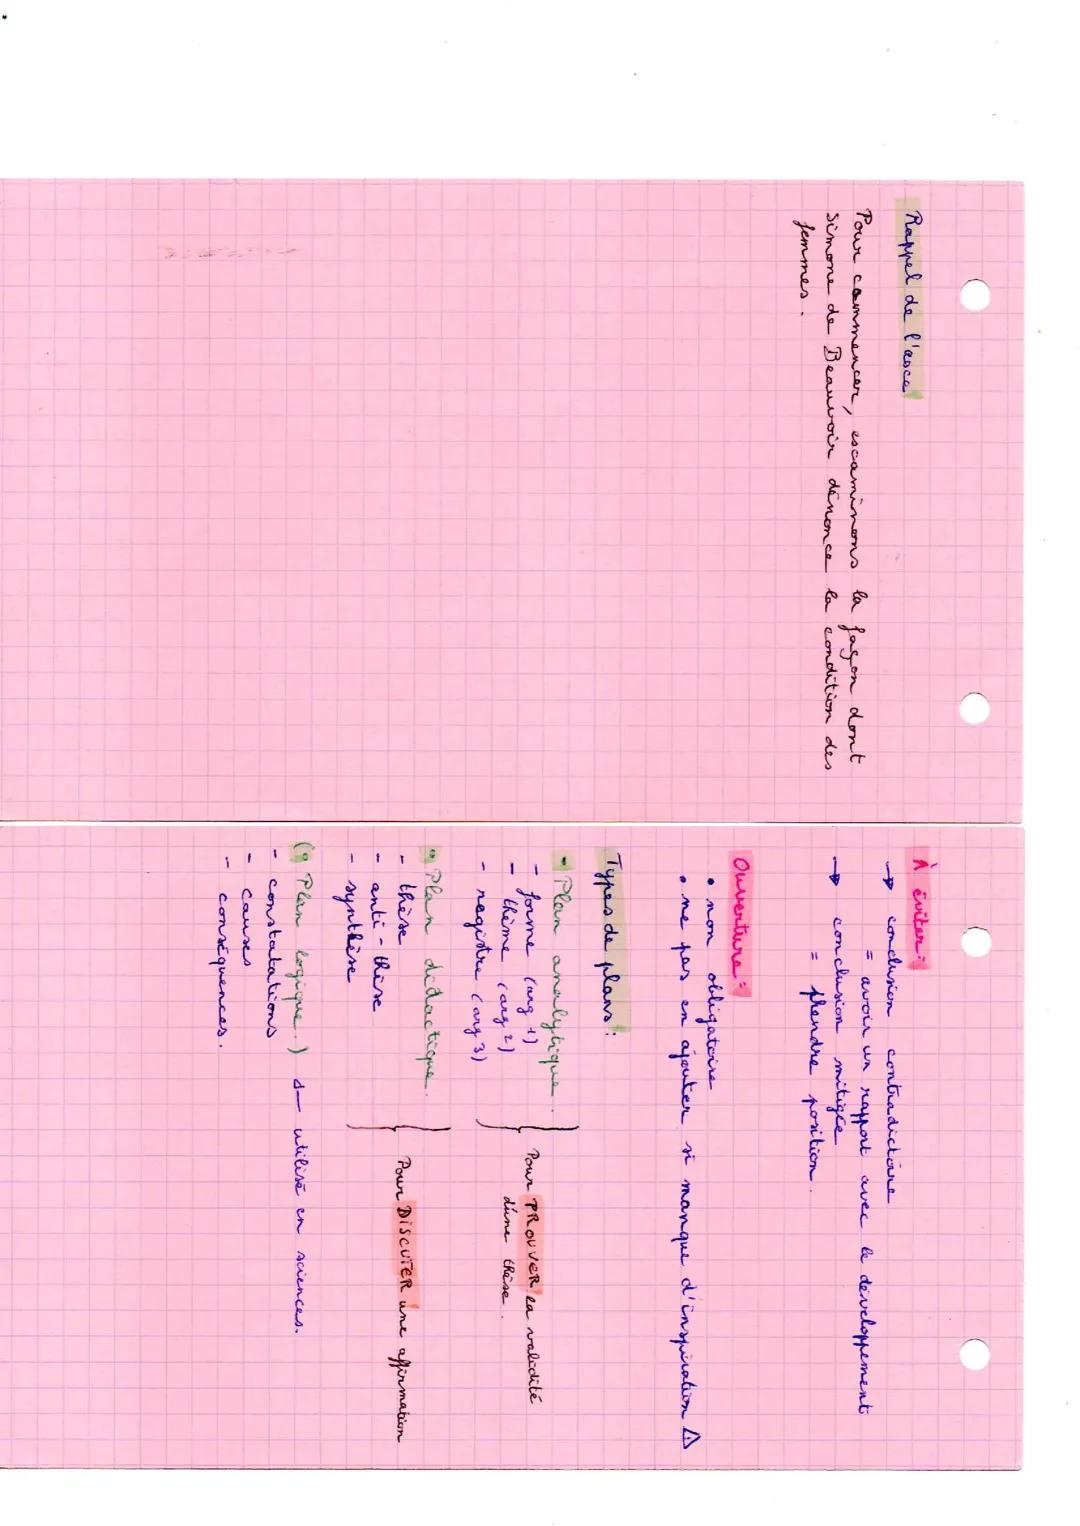 Rappel de l'axe
Pour commencer, examinons la façon dont
Simone de Beauvoir dénonce la condition des
femmes.
À éviter :
→ conclusion contradictoire
= avoir un rapport avec le développement
→ conclusion mitigée
= prendre position.
Ouverture :
• non obligatoire
• ne pas en ajouter si manque d'inspiration ⚠
Types de plans :
• Plan analytique.
- forme (arg 1)
- thème (arg 2)
- registre (arg 3)
Pour PROUVER la validité
d'une thèse.
• Plan didactique.
- thèse
- anti-thèse
- synthèse
Pour DISCUTER une affirmation
(• Plan logique.) ← utilisé en sciences.
- constatations
- causes
- conséquences.